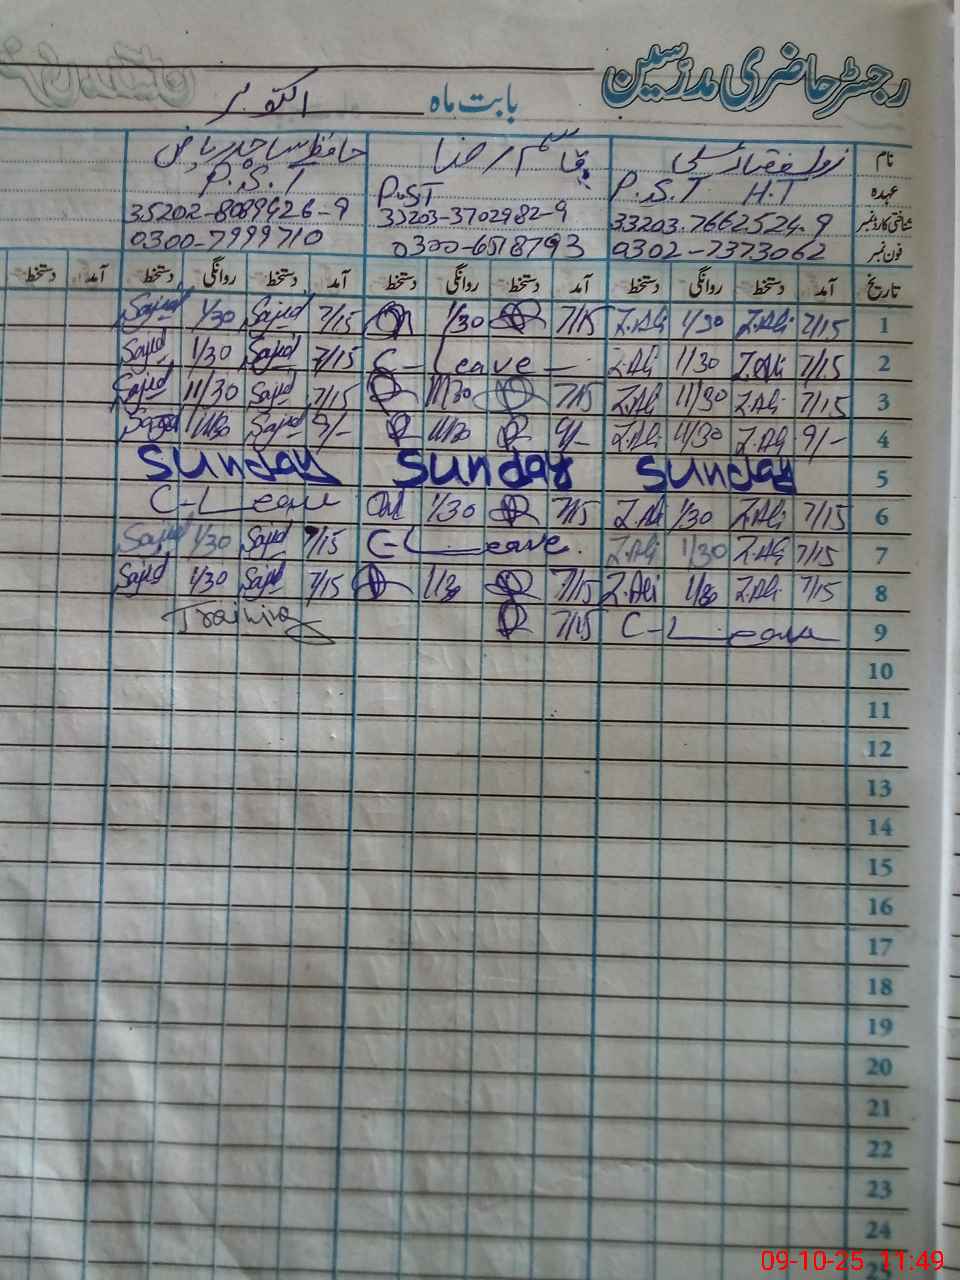 رجسٹر حاضری مدرسین
بابت ماہ اکتوبر
نام ذوالفقار علی قاسم رضا حافظ ساجد ریاض
عہدہ P.S.T H.T P.S.T P.S.T
شناختی کارڈ نمبر 33203-7662524-9 33203-3702982-9 35202-8089426-9
فون نمبر 0302-7373062 0300-6518793 0300-7999710
تاریخ آمد دستخط روانگی دستخط آمد دستخط روانگی دستخط آمد دستخط روانگی دستخط آمد دستخط
1 7/15 Z.Ali 1/30 Z.Ali 7/15 1/30 7/15 Sajid 1/30 Sajid
2 7/15 Z.Ali 11/30 Z.Ali C-Leave 7/15 Sajid 1/30 Sajid
3 7/15 Z.Ali 11/30 Z.Ali 7/15 11/30 7/15 Sajid 11/30 Sajid
4 9/- Z.Ali 11/30 Z.Ali 9/- 11/30 9/- Sajid 11/30 Sajid
5 Sunday Sunday Sunday
6 7/15 Z.Ali 1/30 Z.Ali 7/15 1/30 C-Leave
7 7/15 Z.Ali 1/30 Z.Ali C-Leave. 7/15 Sajid 1/30 Sajid
8 7/15 Z.Ali 1/30 Z.Ali 7/15 1/30 7/15 Sajid 1/30 Sajid
9 C-Leave 7/15 Training
10
11
12
13
14
15
16
17
18
19
20
21
22
23
24
25
09-10-25 11:49